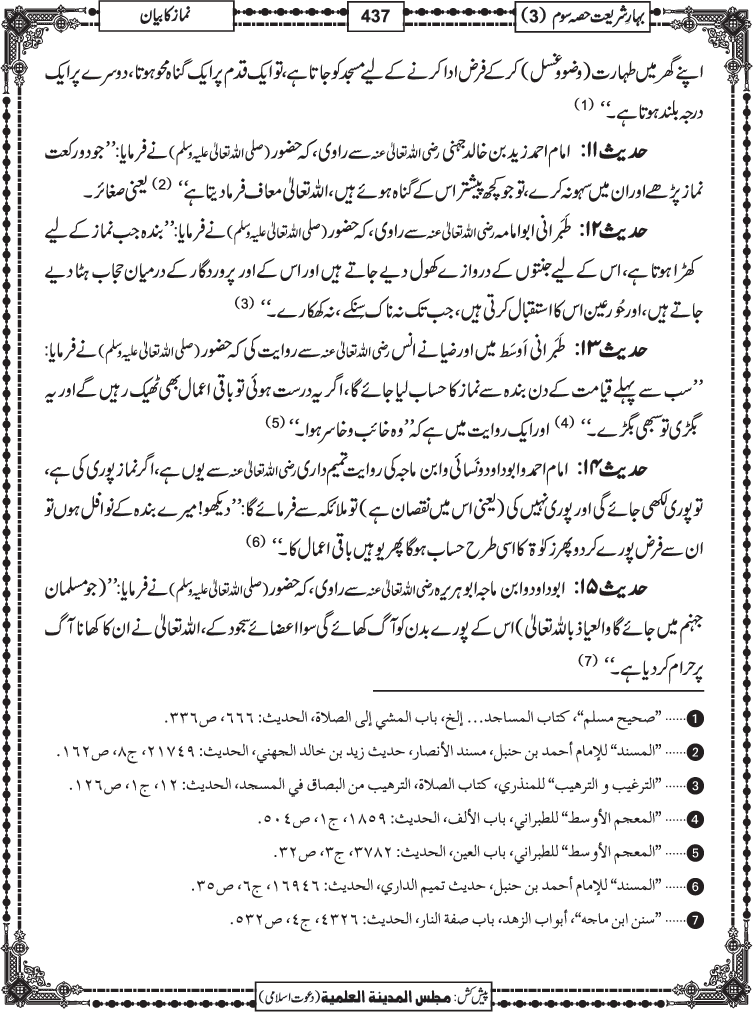 بہارِ شریعت حصہ سوم (3)
437
نماز کا بیان
اپنے گھر میں طہارت (وضو و غسل) کر کے فرض ادا کرنے کے لیے مسجد کو جاتا ہے، تو ایک قدم پر ایک گناہ محو ہوتا، دوسرے پر ایک
درجہ بلند ہوتا ہے۔‘‘ (1)
حدیث ۱۱: امام احمد زید بن خالد جہنی رضی اللہ تعالیٰ عنہ سے راوی، کہ حضور (صلی اللہ تعالیٰ علیہ وسلم) نے فرمایا: ’’جو دو رکعت
نماز پڑھے اور ان میں سہو نہ کرے، تو جو کچھ پیشتر اس کے گناہ ہوئے ہیں، اللہ تعالیٰ معاف فرما دیتا ہے‘‘ (2) یعنی صغائر۔
حدیث ۱۲: طَبَرانی ابو امامہ رضی اللہ تعالیٰ عنہ سے راوی، کہ حضور (صلی اللہ تعالیٰ علیہ وسلم) نے فرمایا: ’’بندہ جب نماز کے لیے
کھڑا ہوتا ہے، اس کے لیے جنتوں کے دروازے کھول دیے جاتے ہیں اور اس کے اور پروردگار کے درمیان حجاب ہٹا دیے
جاتے ہیں، اور حُور عین اس کا استقبال کرتی ہیں، جب تک نہ ناک سنکے، نہ کھکارے۔‘‘ (3)
حدیث ۱۳: طَبَرانی اَوسَط میں اور ضیا نے انس رضی اللہ تعالیٰ عنہ سے روایت کی کہ حضور (صلی اللہ تعالیٰ علیہ وسلم) نے فرمایا:
’’سب سے پہلے قیامت کے دن بندہ سے نماز کا حساب لیا جائے گا، اگر یہ درست ہوئی تو باقی اعمال بھی ٹھیک رہیں گے اور یہ
بگڑی تو سبھی بگڑے۔‘‘ (4) اور ایک روایت میں ہے کہ ’’وہ خائب و خاسر ہوا۔‘‘ (5)
حدیث ۱۴: امام احمد و ابو داود و نَسائی و ابن ماجہ کی روایت تمیم داری رضی اللہ تعالیٰ عنہ سے یوں ہے، اگر نماز پوری کی ہے،
تو پوری لکھی جائے گی اور پوری نہیں کی (یعنی اس میں نقصان ہے) تو ملائکہ سے فرمائے گا: ’’دیکھو! میرے بندہ کے نوافل ہوں تو
ان سے فرض پورے کر دو پھر زکوٰۃ کا اسی طرح حساب ہوگا پھر یوہیں باقی اعمال کا۔‘‘ (6)
حدیث ۱۵: ابو داود و ابن ماجہ ابو ہریرہ رضی اللہ تعالیٰ عنہ سے راوی، کہ حضور (صلی اللہ تعالیٰ علیہ وسلم) نے فرمایا: ’’(جو مسلمان
جہنم میں جائے گا والعیاذ باللہ تعالیٰ) اس کے پورے بدن کو آگ کھائے گی سوا اعضائے سجود کے، اللہ تعالیٰ نے ان کا کھانا آگ
پر حرام کر دیا ہے۔‘‘ (7)
1 ...... ”صحیح مسلم“، کتاب المساجد... إلخ، باب المشي إلی الصلاۃ، الحدیث: ٦٦٦، ص۳۳٦.
2 ...... ”المسند“ للإمام أحمد بن حنبل، مسند الأنصار، حدیث زید بن خالد الجهني، الحدیث: ۲۱۷٤۹، ج۸، ص۱٦۲.
3 ...... ”الترغیب و الترهیب“ للمنذري، کتاب الصلاۃ، الترهیب من البصاق في المسجد، الحدیث: ۱۲، ج۱، ص۱۲٦.
4 ...... ”المعجم الأوسط“ للطبراني، باب الألف، الحدیث: ۱۸٥۹، ج۱، ص٥۰٤.
5 ...... ”المعجم الأوسط“ للطبراني، باب العین، الحدیث: ۳۷۸۲، ج۳، ص۳۲.
6 ...... ”المسند“ للإمام أحمد بن حنبل، حدیث تمیم الداري، الحدیث: ۱٦۹٤٦، ج٦، ص۳٥.
7 ...... ”سنن ابن ماجه“، أبواب الزهد، باب صفة النار، الحدیث: ٤۳۲٦، ج٤، ص٥۳۲.
پیش کش: مجلس المدینۃ العلمیۃ (دعوت اسلامی)